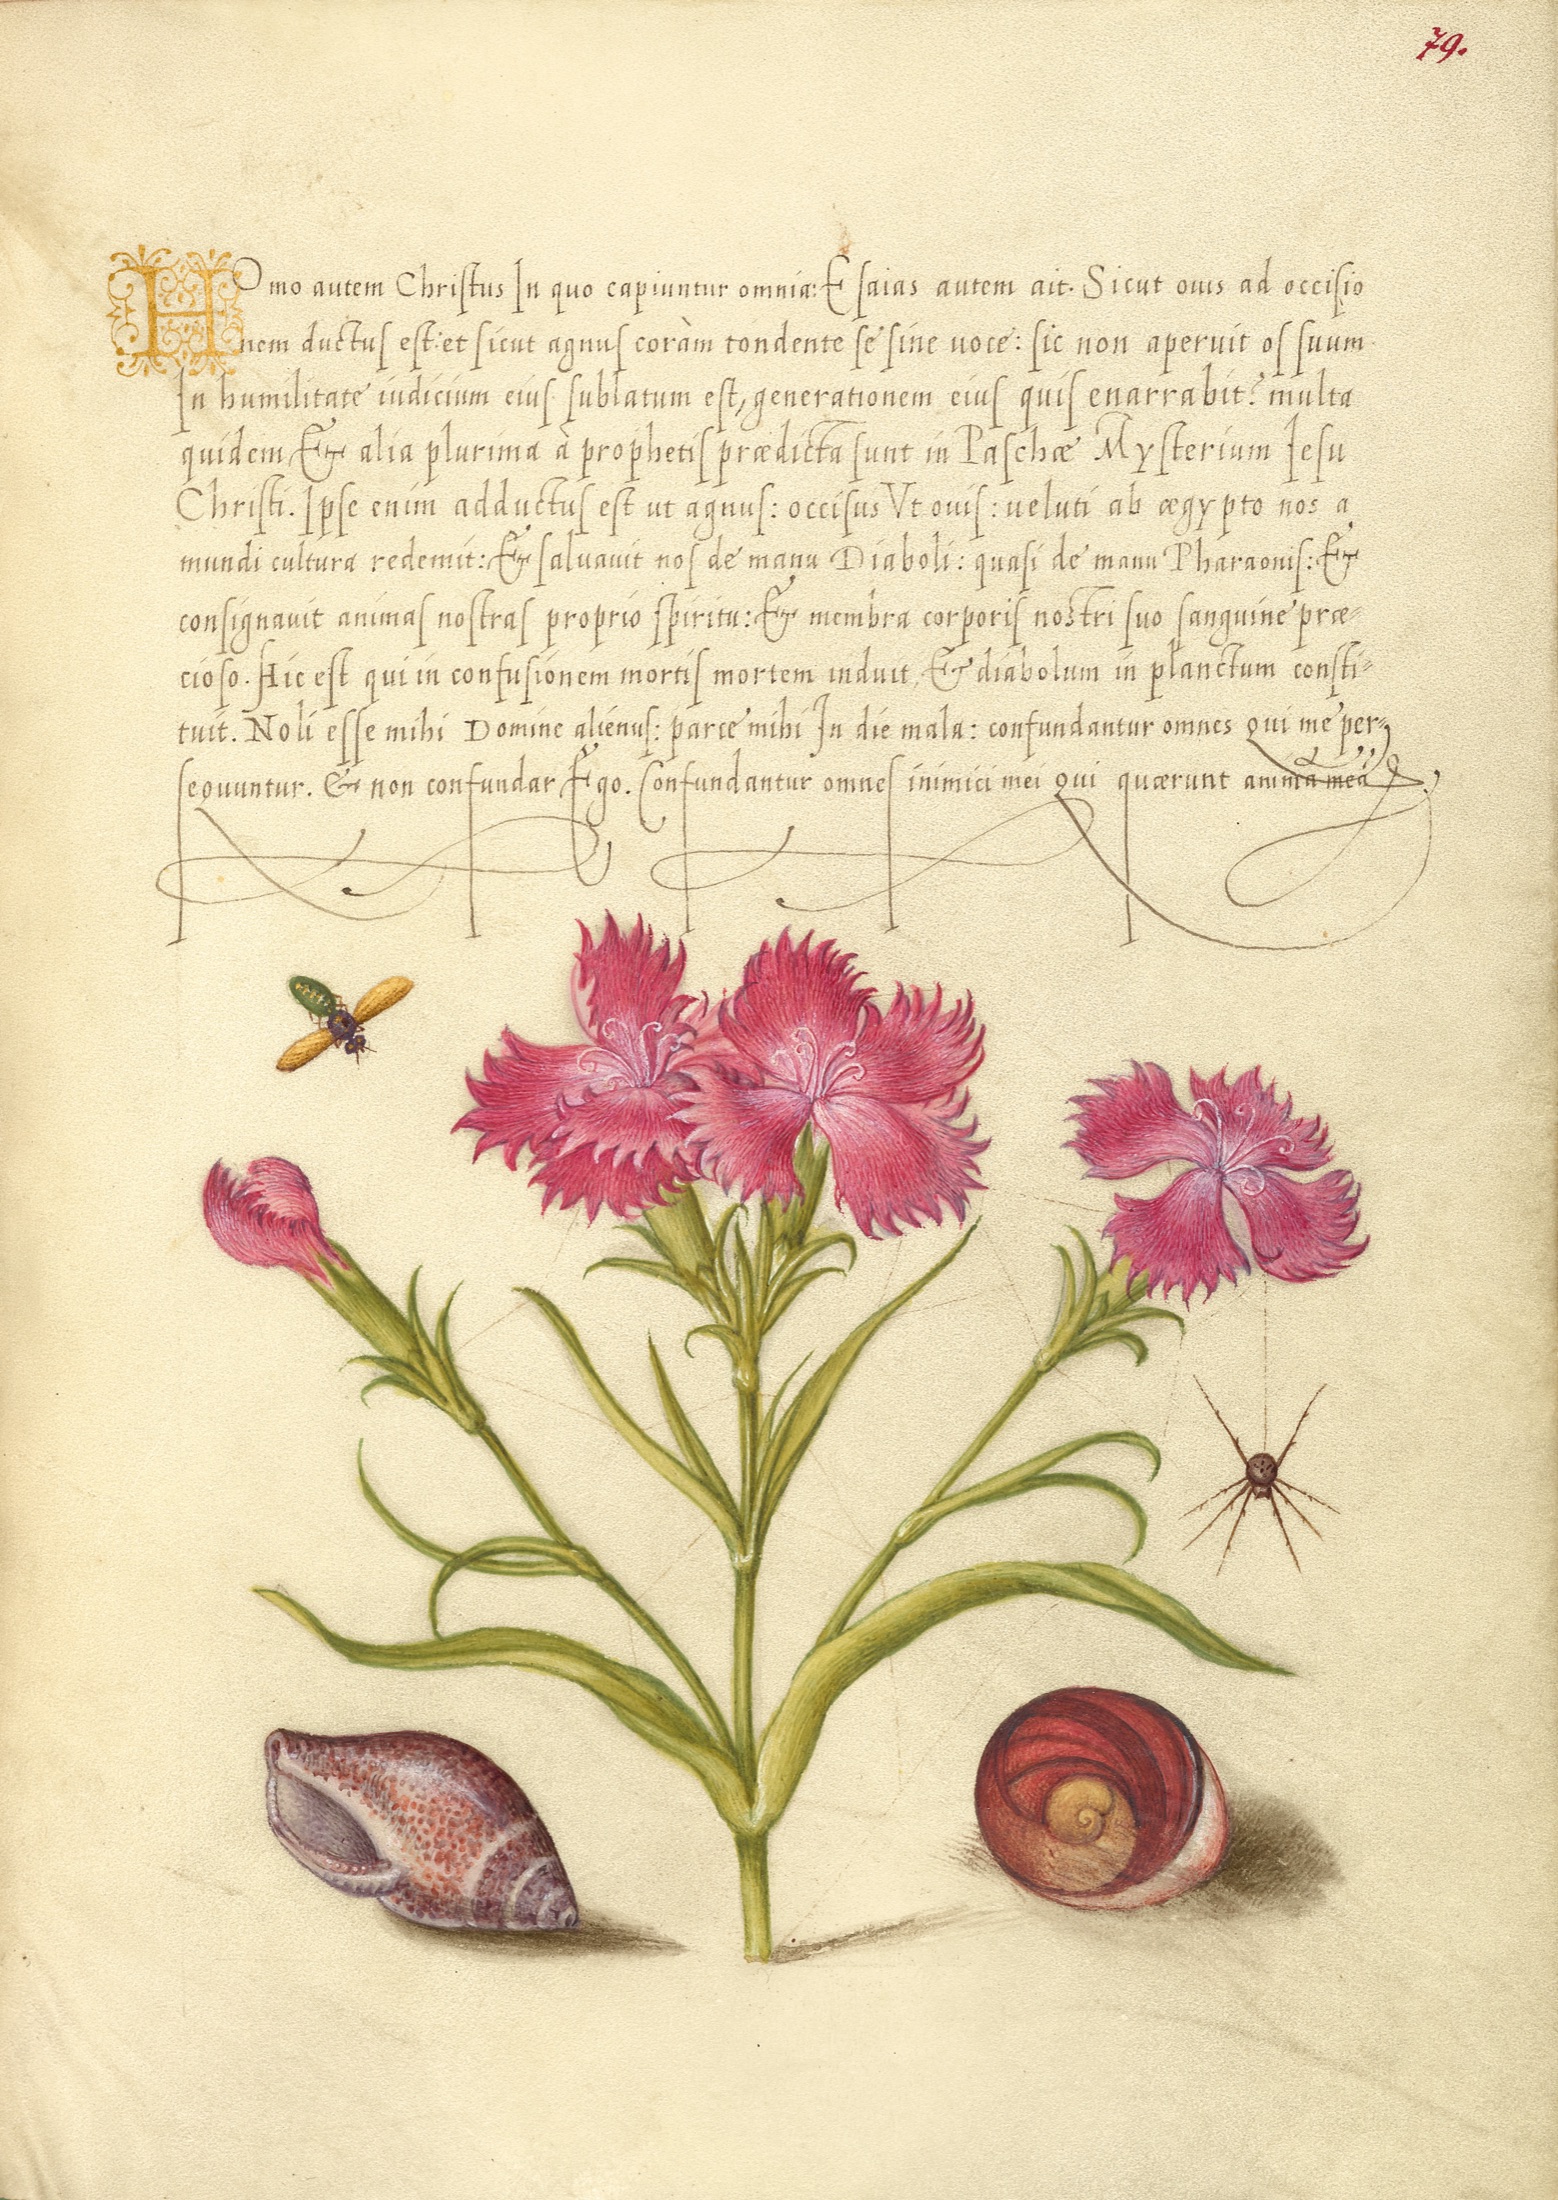 79.
Homo autem Christus In quo capiuntur omnia: Esaias autem ait. Sicut ouis ad occisio
nem ductus est: et sicut agnus coràm tondente se sine uoce: sic non aperuit os suum.
In humilitate iudicium eius sublatum est, generationem eius quis enarrabit? multa
quidem Et alia plurima à prophetis prædicta sunt in Paschæ Mysterium Jesu
Christi. Ipse enim adductus est ut agnus: occisus Vt ouis: ueluti ab ægypto nos a
mundi cultura redemit: Et saluauit nos de manu Diaboli: quasi de manu Pharaonis: Et
consignauit animas nostras proprio spiritu: Et membra corporis nostri suo sanguine præ-
cioso. Hic est qui in confusionem mortis mortem induit, & diabolum in planctum consti-
tuit. Noli esse mihi Domine alienus: parce mihi In die mala: confundantur omnes qui me per-
sequuntur. & non confundar Ego. Confundantur omnes inimici mei qui quærunt anima meã.